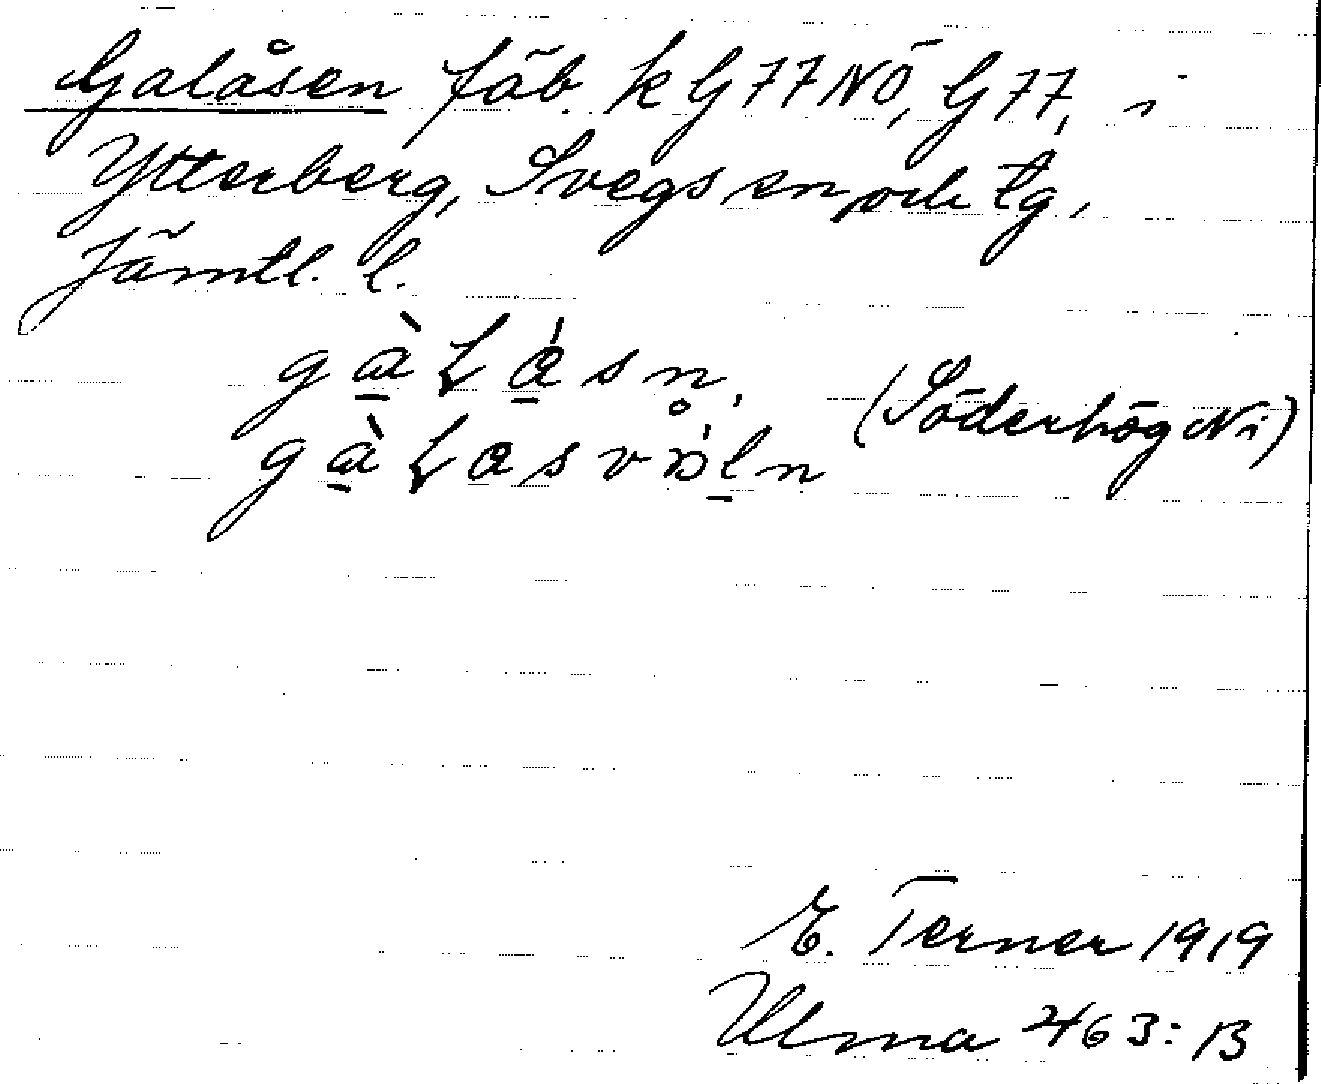 Galåsen fäb. k G77NÖ, G77, i
Ytterberg, Svegs sn och tg,
Jämtl. l.
gàLása sn,
gàLasvöln (Söderhög Ni)
E. Terner 1919
Ulma 463:13